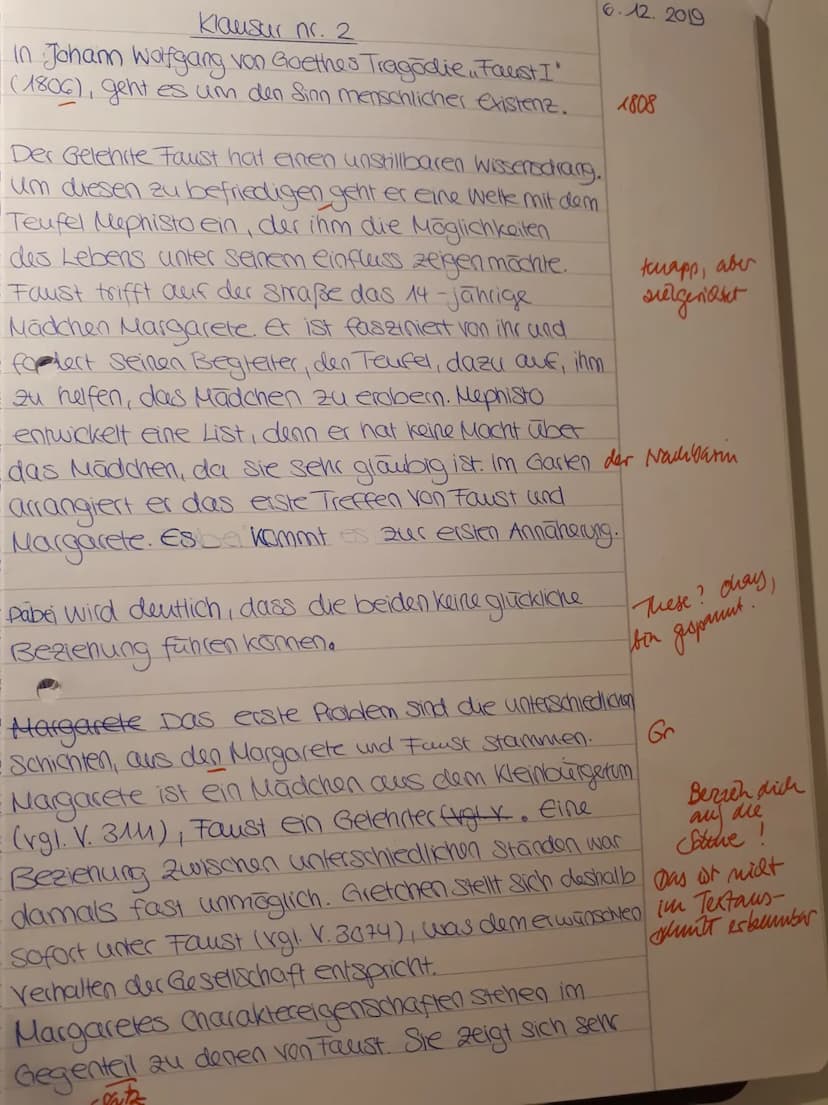 6.12.2019
Klausur nr. 2
In Johann Wolfgang von Goethes Tragödie „Faust I"
(1806), geht es um den Sinn menschlicher Existenz.
1808
Der Gelehrte Faust hat einen unstillbaren Wissensdrang.
Um diesen zu befriedigen geht er eine Wette mit dem
Teufel Mephisto ein, der ihm die Möglichkeiten
des Lebens unter seinem Einfluss zeigen möchte.
knapp, aber
zielgerichtet
Faust trifft auf der Straße das 14-jährige
Mädchen Margarete. Er ist fasziniert von ihr und
fordert seinen Begleiter, den Teufel, dazu auf, ihm
zu helfen, das Mädchen zu erobern. Mephisto
entwickelt eine List, denn er hat keine Macht über
das Mädchen, da sie sehr gläubig ist. Im Garten der Nachbarin
arrangiert er das erste Treffen von Faust und
Margarete. Es kommt zur ersten Annäherung.
Dabei wird deutlich, dass die beiden keine glückliche
Beziehung führen können.
These? Okay,
bin gespannt.
Margarete Das erste Problem sind die unterschiedlichen
Schichten, aus den Margarete und Faust stammen.
Gr
Margarete ist ein Mädchen aus dem Kleinbürgertum
(vgl. V. 3111), Faust ein Gelehrter (vgl. V. . Eine
Beziehung zwischen unterschiedlichen Ständen war
damals fast unmöglich. Gretchen stellt sich deshalb
sofort unter Faust (vgl. V. 3074), was dem erwünschten
Verhalten der Gesellschaft entspricht.
Bezieh dich
auf die
!
Das ist nicht
im Textaus-
schnitt erkennbar
Margaretes Charaktereigenschaften stehen im
Gegenteil zu denen von Faust. Sie zeigt sich sehr
satz